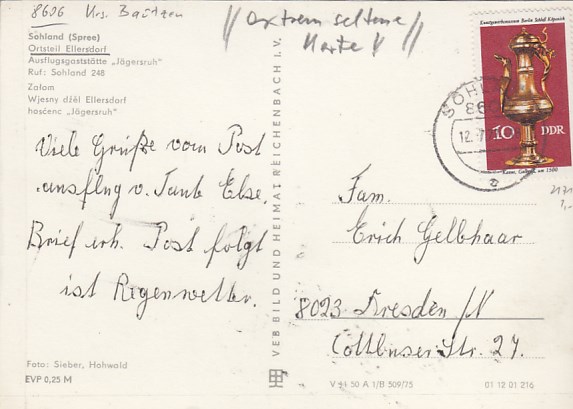 8606 Krs. Bautzen
// extrem seltene
Karte !! //
Sohland (Spree)
Ortsteil Ellersdorf
Ausflugsgaststätte „Jägersruh"
Ruf: Sohland 248
Załom
Wjesny dźěl Ellersdorf
hosćenc „Jägersruh"
Viele Grüße vom Post
ausflug v. Tante Else.
Brief erh. Post folgt
ist Regenwetter.
Foto: Sieber, Hohwald
EVP 0,25 M
VEB BILD UND HEIMAT REICHENBACH i. V.
Kunstgewerbemuseum Berlin Schloß Köpenick
10 DDR
Kanne, Gold, um 1500
SOHL
86
12.7
a
2171
1,-
Fam.
Erich Gelbhaar
8023 Dresden /N
Cottbuser Str. 27.
V 11 50 A 1/B 509/75
01 12 01 216